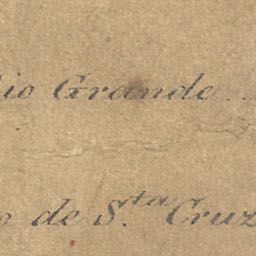 io Grande
o de S.ta Cruz